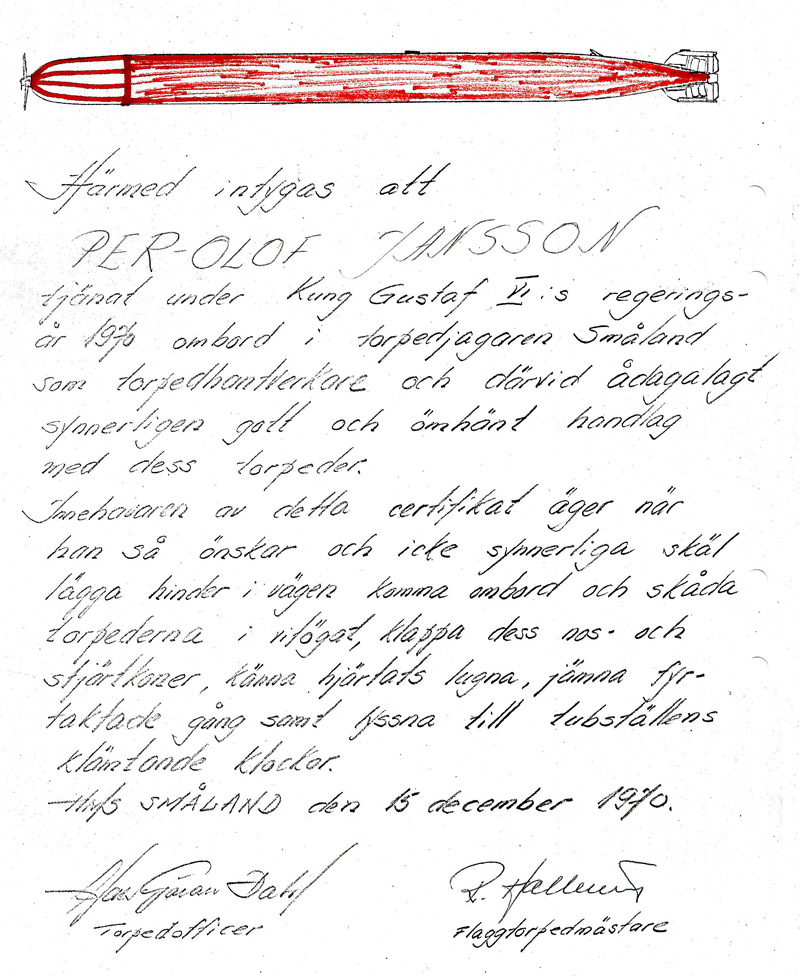 Härmed intygas att
PER-OLOF JANSSON
tjänat under Kung Gustaf VI:s regerings-
år 1970 ombord i torpedjagaren Småland
som torpedhantverkare och därvid ådagalagt
synnerligen gott och ömhänt handlag
med dess torpeder.
Innehavaren av detta certifikat äger när
han så önskar och icke synnerliga skäl
lägga hinder i vägen komma ombord och skåda
torpederna i vitögat, klappa dess nos- och
stjärtkoner, känna hjärtats lugna, jämna fyr-
taktade gång samt lyssna till tubställens
klämtande klockor.
HMS SMÅLAND den 15 december 1970.
Göran Dahl
R.
Torpedofficer
Flaggtorpedmästare